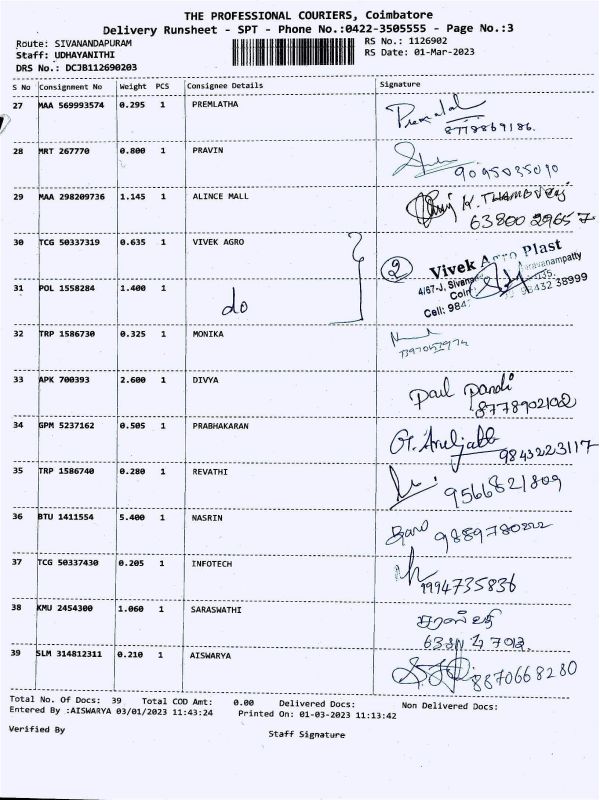 THE PROFESSIONAL COURIERS, Coimbatore
Delivery Runsheet - SPT - Phone No.:0422-3505555 - Page No.:3
Route: SIVANANDAPURAM RS No.: 1126902
Staff: UDHAYANITHI RS Date: 01-Mar-2023
DRS No.: DCJB112690203
S No Consignment No Weight PCS Consignee Details Signature
27 MAA 569993574 0.295 1 PREMLATHA Premalal
8778869186.
28 MRT 267770 0.800 1 PRAVIN
9095035010
29 MAA 298209736 1.145 1 ALINCE MALL K. THAMBURAJ
63800 29657
30 TCG 50337319 0.635 1 VIVEK AGRO 2 Vivek Agro Plast
4/67-J, Sivanan Saravanampatty
31 POL 1558284 1.400 1 do Coim 035.
Cell: 984 98432 38999
32 TRP 1586730 0.325 1 MONIKA
33 APK 700393 2.600 1 DIVYA Paul Pandi
8778902102
34 GPM 5237162 0.505 1 PRABHAKARAN
9843223117
35 TRP 1586740 0.280 1 REVATHI
9566821809
36 BTU 1411554 5.400 1 NASRIN
9889780222
37 TCG 50337430 0.205 1 INFOTECH
9994735836
38 KMU 2454300 1.060 1 SARASWATHI
39 SLM 314812311 0.210 1 AISWARYA 8870668280
Total No. Of Docs: 39 Total COD Amt: 0.00 Delivered Docs: Non Delivered Docs:
Entered By :AISWARYA 03/01/2023 11:43:24 Printed On: 01-03-2023 11:13:42
Verified By Staff Signature